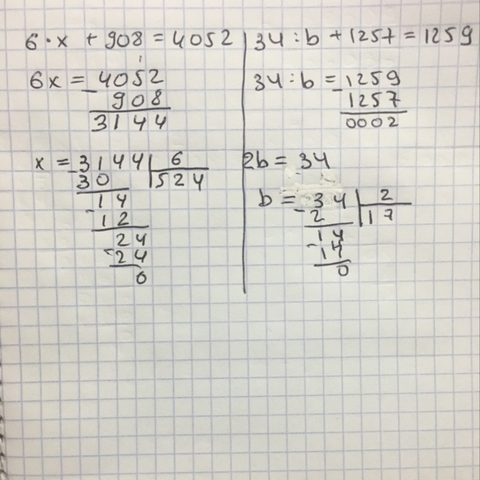 6·x + 908 = 4052
6x = 4052
- 908
3144
x = 3144 | 6
- 30 | 524
14
- 12
24
- 24
0
34:b + 1257 = 1259
34:b = 1259
- 1257
0002
2b = 34
b = 34 | 2
- 2 | 17
14
- 14
0